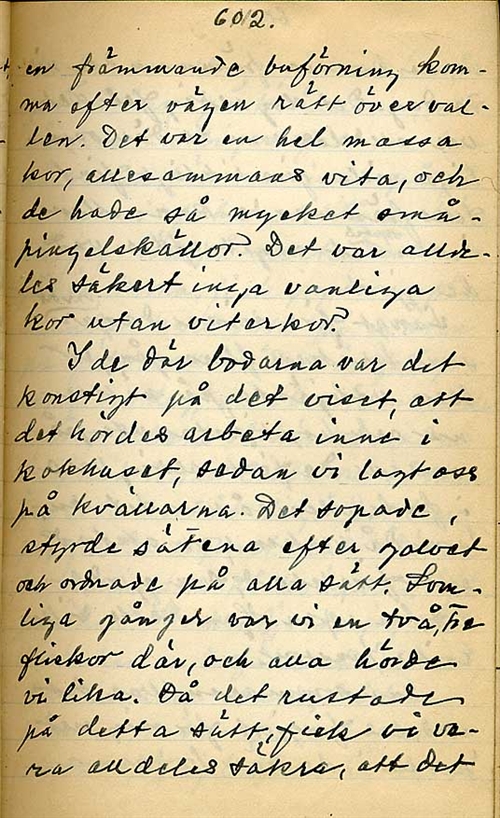 602.
en främmande buförning kom-
ma efter vägen rätt över val-
len. Det var en hel massa
kor, allesammans vita, och
de hade så mycket små-
pingelskällor. Det var allde-
les säkert inga vanliga
kor utan viterkor.
I de där bodarna var det
konstigt på det viset, att
det hördes arbeta inne i
kokhuset, sedan vi lagt oss
på kvällarna. Det sopade,
styrde sätena efter golvet
och ordnade på alla sätt. Som-
liga gånger var vi en två, tre
flickor där, och alla hörde
vi lika. Då det rustade
på detta sätt, fick vi va-
ra alldeles säkra, att det